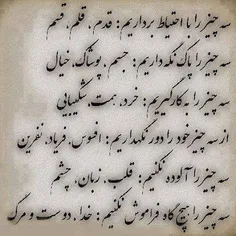 سه چیز را با احتیاط برداریم: قدم، قلم، قسم
سه چیز را پاک نگه داریم: جسم، پوشاک، خیال
سه چیز را به کار گیریم: خرد، همت، شکیبایی
از سه چیز خود را دور نگهداریم: افسوس، فریاد، نفرین
سه چیز را آلوده نکنیم: قلب، زبان، چشم
سه چیز را هیچ گاه فراموش نکنیم: خدا، دوست و مرگ